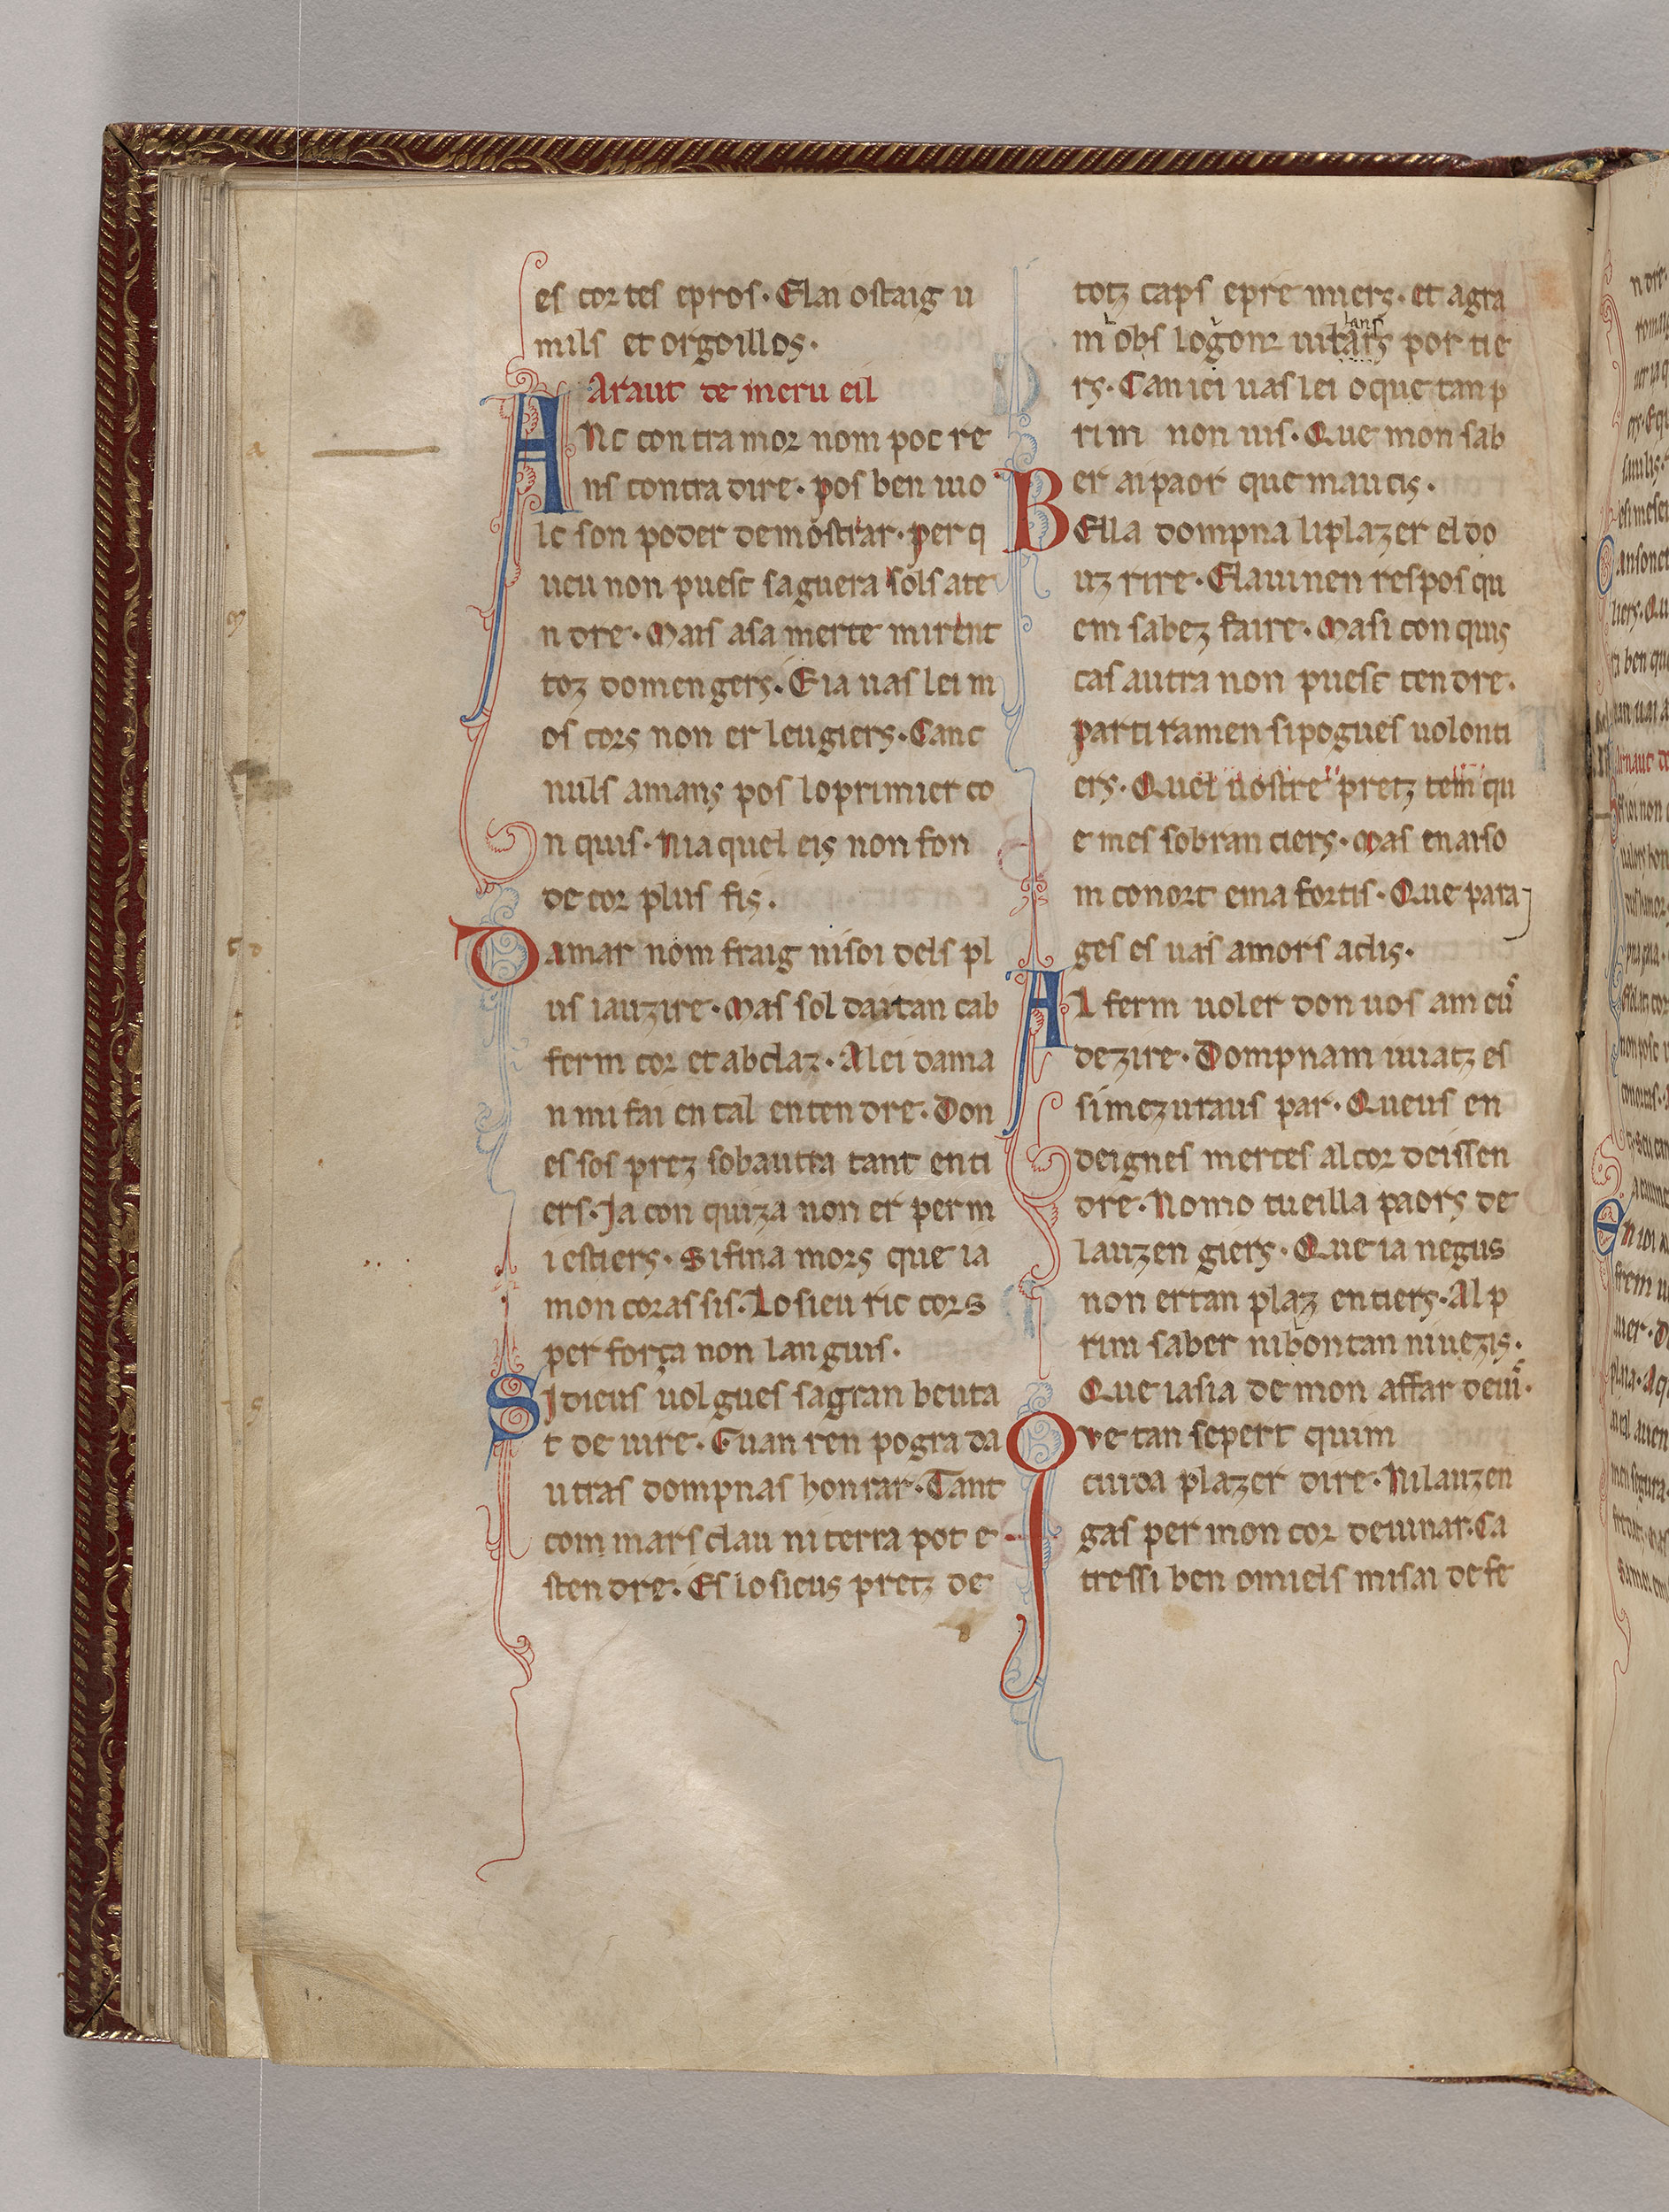 es cortes epros. Elai ostaig u
mils et orgoillos.
Araut de meru eil
ANc contramor nom poc re
ns contra dire. pos ben uuo
lc son poder demostrar. per q
ueu non puesc saguera sols ate
n dre. Mais asa merce mirent
toz domengers. E ia uas lei m
os cors non er leugiers. Canc
nuls amans pos loprimier co
n quis. Nia quel eis non fon
de cor plus fis.
Damar nom fraig nisoi dels pl
us iauzire. Mas sol dautan cab
ferm cor et abclaz. A lei dama
n mi fai en tal enten dre. Don
es sos prez sobautra tant enti
ers. Ja con quiza non er per m
i estiers. Si fina mors que ia
mon cor assis. Lo sieu ric cors
per força non lan guis.
SJ dieus uolgues sagran beuta
t de uire. Cuan ren pogra da
utras dompnas honrar. Tant
com mars clau ni terra pot e
sten dre. Es lo sieus pretz de
totz caps epre miers. et agra
m obs logonz uitars por tie
lans
rs. Can ici uas lei o que tan p
rim non uis. Que mon sab
er ai paor que maucis.
BElla dompna li plazer el do
uz rire. Elauinen respos qu
em sabez faire. Masi con quis
cas autra non puesc ten dre.
parti ramen si pogues uolonti
ers. Quel uostre pretz tem qu
e mes sobran ciers. Mas en aiso
m conort ema fortis. Que para
ges es uas amors aclis.
AL ferm uoler don uos am eus
dezire. Dompnam uuatz es
si mezuraus par. Queus en
deignes merces al cor deissen
dre. No mo tueilla paors de
lauzen giers. Que ia negus
non ertan plaz entiers. Al p
rim saber ni bontan niuezis.
Que iasia de mon affar deuis.
Que tan sepert quim
cuida plazer dire. Nilauzen
gas per mon cor deuinar. Ca
tressi ben omiels misai defe